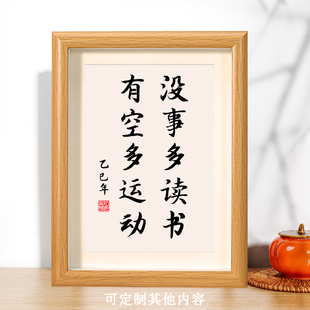 没事多读书
有空多运动
乙巳年
可定制其他内容